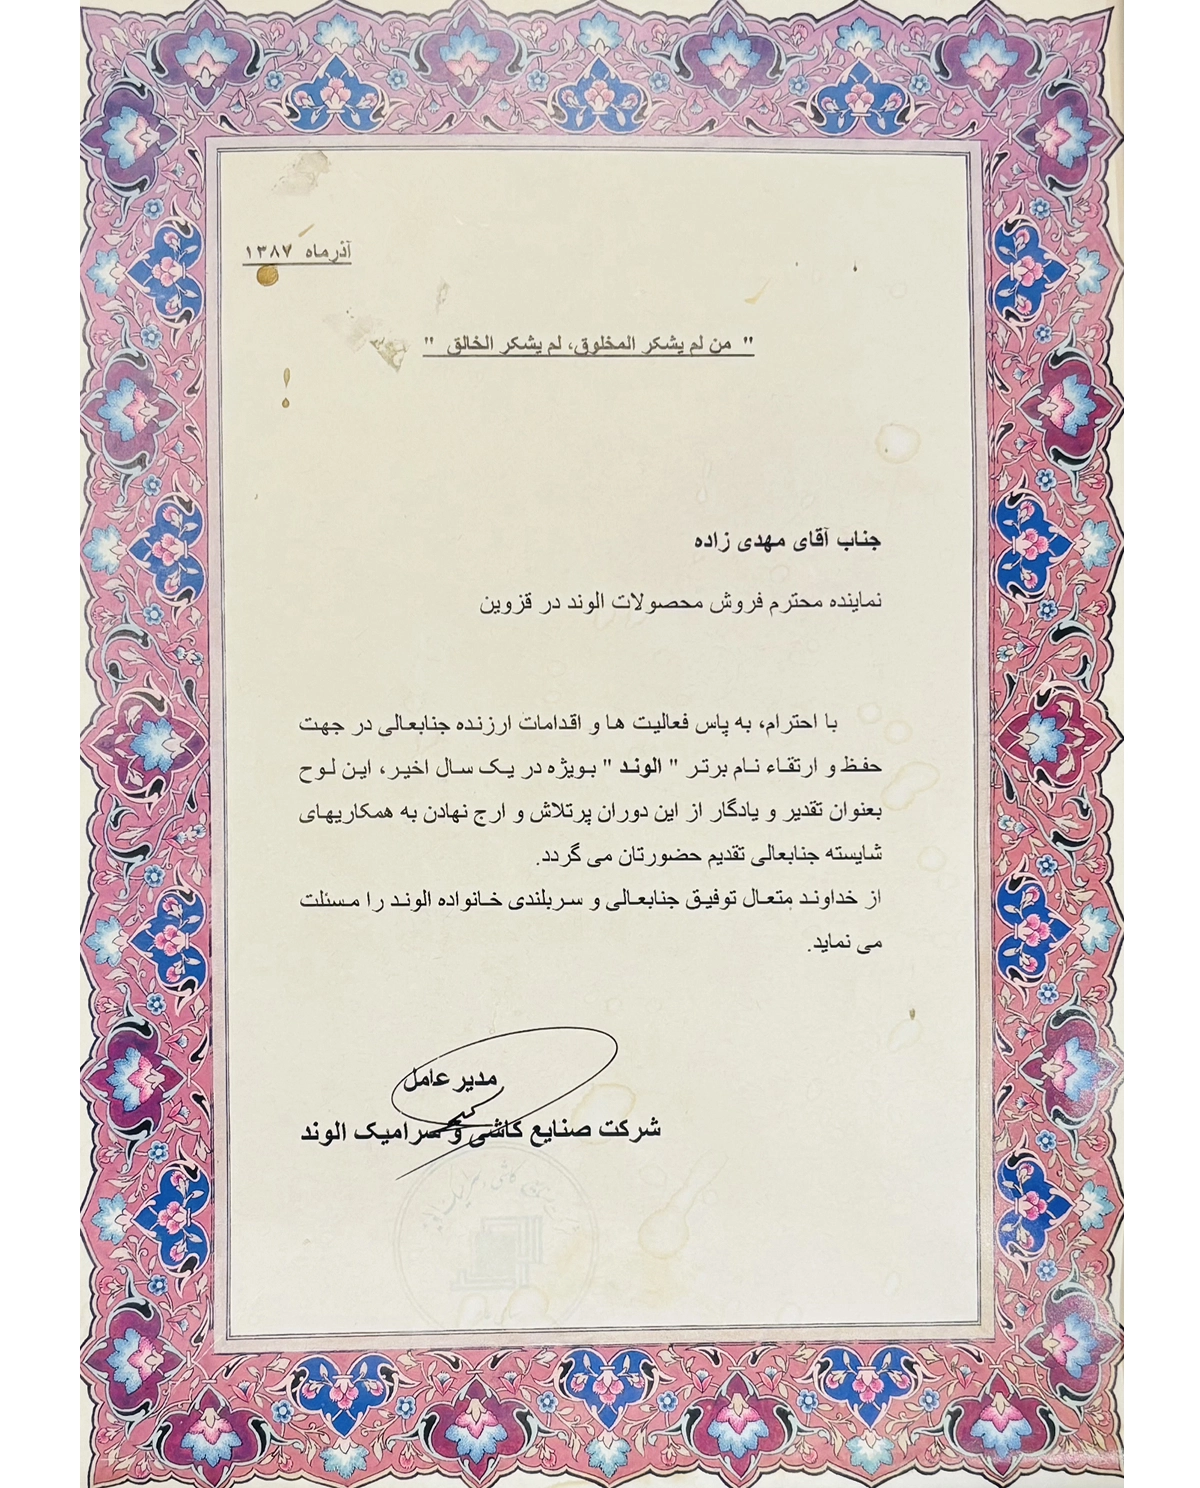 آذرماه ۱۳۸۷
" من لم یشکر المخلوق، لم یشکر الخالق "
جناب آقای مهدی زاده
نماینده محترم فروش محصولات الوند در قزوین
با احترام، به پاس فعالیت ها و اقدامات ارزنده جنابعالی در جهت
حفظ و ارتقاء نام برتر " الوند " بویژه در یک سال اخیر، این لوح
بعنوان تقدیر و یادگار از این دوران پرتلاش و ارج نهادن به همکاریهای
شایسته جنابعالی تقدیم حضورتان می گردد.
از خداوند متعال توفیق جنابعالی و سربلندی خانواده الوند را مسئلت
می نماید.
مدیر عامل
شرکت صنایع کاشی و سرامیک الوند